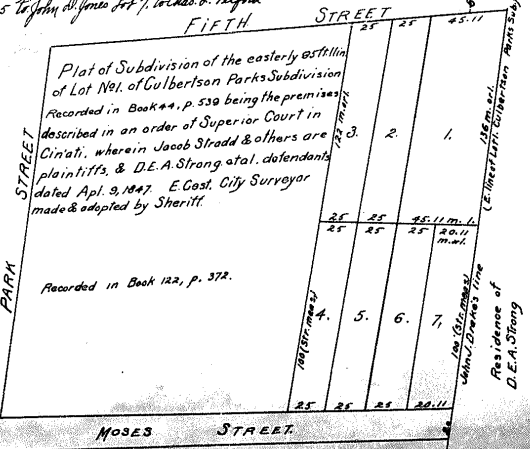 5 to John D. Jones Lot 7. to Chas. L.
FIFTH STREET
25 25 45.11
Plat of Subdivision of the easterly 95ft.11in.
of Lot No1. of Culbertson Parks Subdivision
Recorded in Book 44, p. 539 being the premises
described in an order of Superior Court in
Cin'ati, wherein Jacob Stradd & others are
plaintiffs, & D.E.A. Strong. etal. defendants
dated Apl. 9, 1847. E. Gest, City Surveyor
made & adopted by Sheriff.
Recorded in Book 122, p. 372.
PARK STREET
122 m.orl.
3. 2. 1.
136 m.orl.
(E. line of Lot 1. Culbertson Parks Sub.)
25 25 45.11 m.l.
25 25 25 20.11
m.orl.
100 (Str. meas)
4. 5. 6. 7,
100' (Str. meas)
John J. Drake's line
Residence of
D.E.A. Strong
25 25 25 20.11
MOSES STREET.